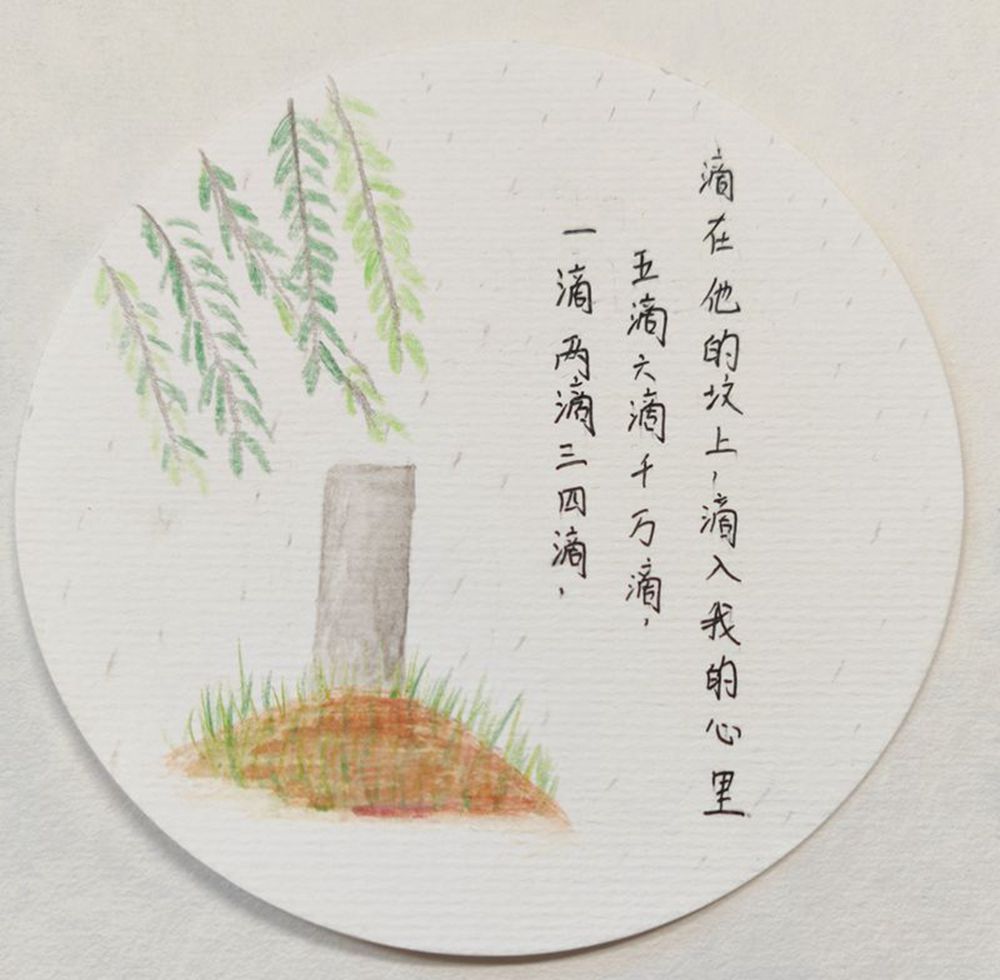 一滴两滴三四滴，
五滴六滴千万滴，
滴在他的坟上，滴入我的心里